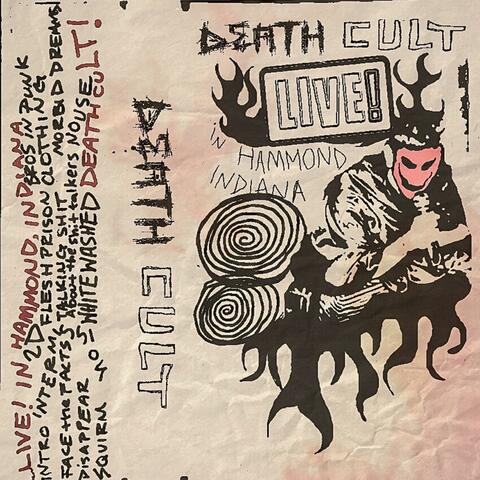 DEATH CULT
LIVE!
in HAMMOND
INDIANA
DEATH CULT
LIVE! IN HAMMOND, INDIANA
INTRO 2D BROS IN PUNK
INTERM FLESH PRISON CLOTHING
FACE the FACTS TALKING SHIT MORBID DREAMS
About the shit talkers NO USE
DISAPPEAR WHITEWASHED DEATH CULT!
SQUIRM